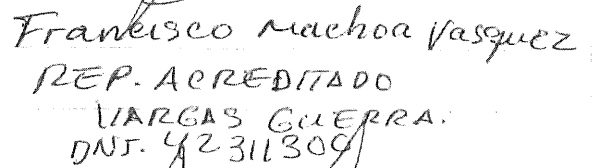 Francisco Machoa Vasquez
REP. ACREDITADO
VARGAS GUERRA.
DNI. 42311309